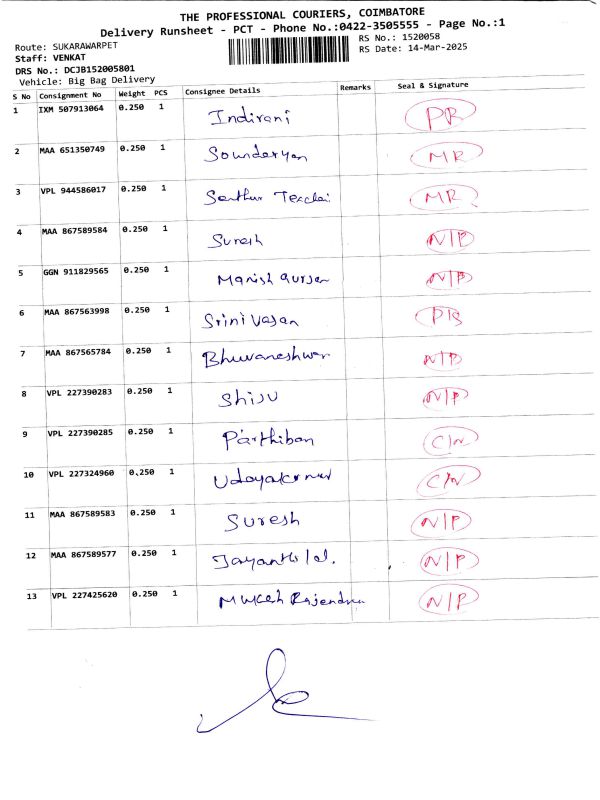 THE PROFESSIONAL COURIERS, COIMBATORE
Delivery Runsheet - PCT - Phone No.:0422-3505555 - Page No.:1
Route: SUKARAWARPET RS No.: 1520058
Staff: VENKAT RS Date: 14-Mar-2025
DRS No.: DCJB152005801
Vehicle: Big Bag Delivery
S No Consignment No Weight PCS Consignee Details Remarks Seal & Signature
1 IXM 507913064 0.250 1 Indirani PR
2 MAA 651350749 0.250 1 MR
3 VPL 944586017 0.250 1 MR
4 MAA 867589584 0.250 1 Suresh N/P
5 GGN 911829565 0.250 1 Manish N/P
6 MAA 867563998 0.250 1 Srinivasan
7 MAA 867565784 0.250 1 Bhuvaneshwar N/P
8 VPL 227390283 0.250 1 Shiju N/P
9 VPL 227390285 0.250 1 Parthiban
10 VPL 227324960 0.250 1
11 MAA 867589583 0.250 1 Suresh N/P
12 MAA 867589577 0.250 1 N/P
13 VPL 227425620 0.250 1 Mukesh Rajendra N/P